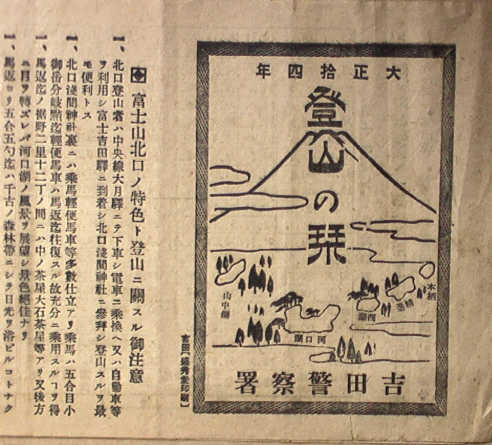 大正拾四年
登山の栞
本栖
精進
西湖
河口湖
山中湖
吉田警察署
富士山北口ノ特色ト登山ニ關スル御注意
一、北口登山者ハ中央線大月驛ニテ下車シ電車ニ乘換ヘ又ハ自動車等
ヲ利用シ富士吉田驛ニ到着シ北口淺間神社ニ參拜シ登山スルヲ最
モ便利トス
一、北口淺間神社裏ニハ乘馬輕便馬車等多數仕立アリ乘馬ハ五合目小
御岳分岐點迄輕便馬車ハ馬返迄往復スル故充分ニ乘用スルヿヲ得
一、馬返迄ノ裾野二里十二丁ノ間ニハ中ノ茶屋大石茶屋等アリ又後方
ニ目ヲ轉ズレバ河口湖ノ風景ヲ展望シ景色絕佳ナリ
一、馬返ヨリ五合五勺迄ハ千古ノ森林帶ニシテ日光ヲ浴ビルコトナク